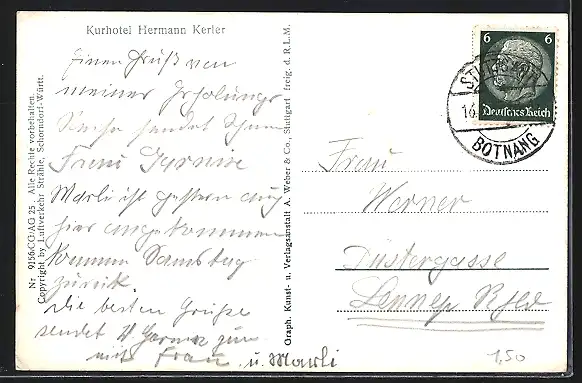 Kurhotel Hermann Kerler
Einen Gruß von
meiner Erholungs
Reise sendet Ihnen
Frau
Marli ist gestern auch
hier angekommen
kommen Samstag
zurück.
Die besten Grüße
sendet H.
mit Frau u. Marli
Nr. 9156/CG/AG 25. Alle Rechte vorbehalten
Copyright by Luftverkehr Strähle, Schorndorf-Württ.
Graph. Kunst- u. Verlagsanstalt A. Weber & Co., Stuttgart freig. d. R.L.M.
6 6
Deutsches Reich
STUTTGART
BOTNANG
Frau
Werner
Düstergasse
Lennep Rhld
1,50